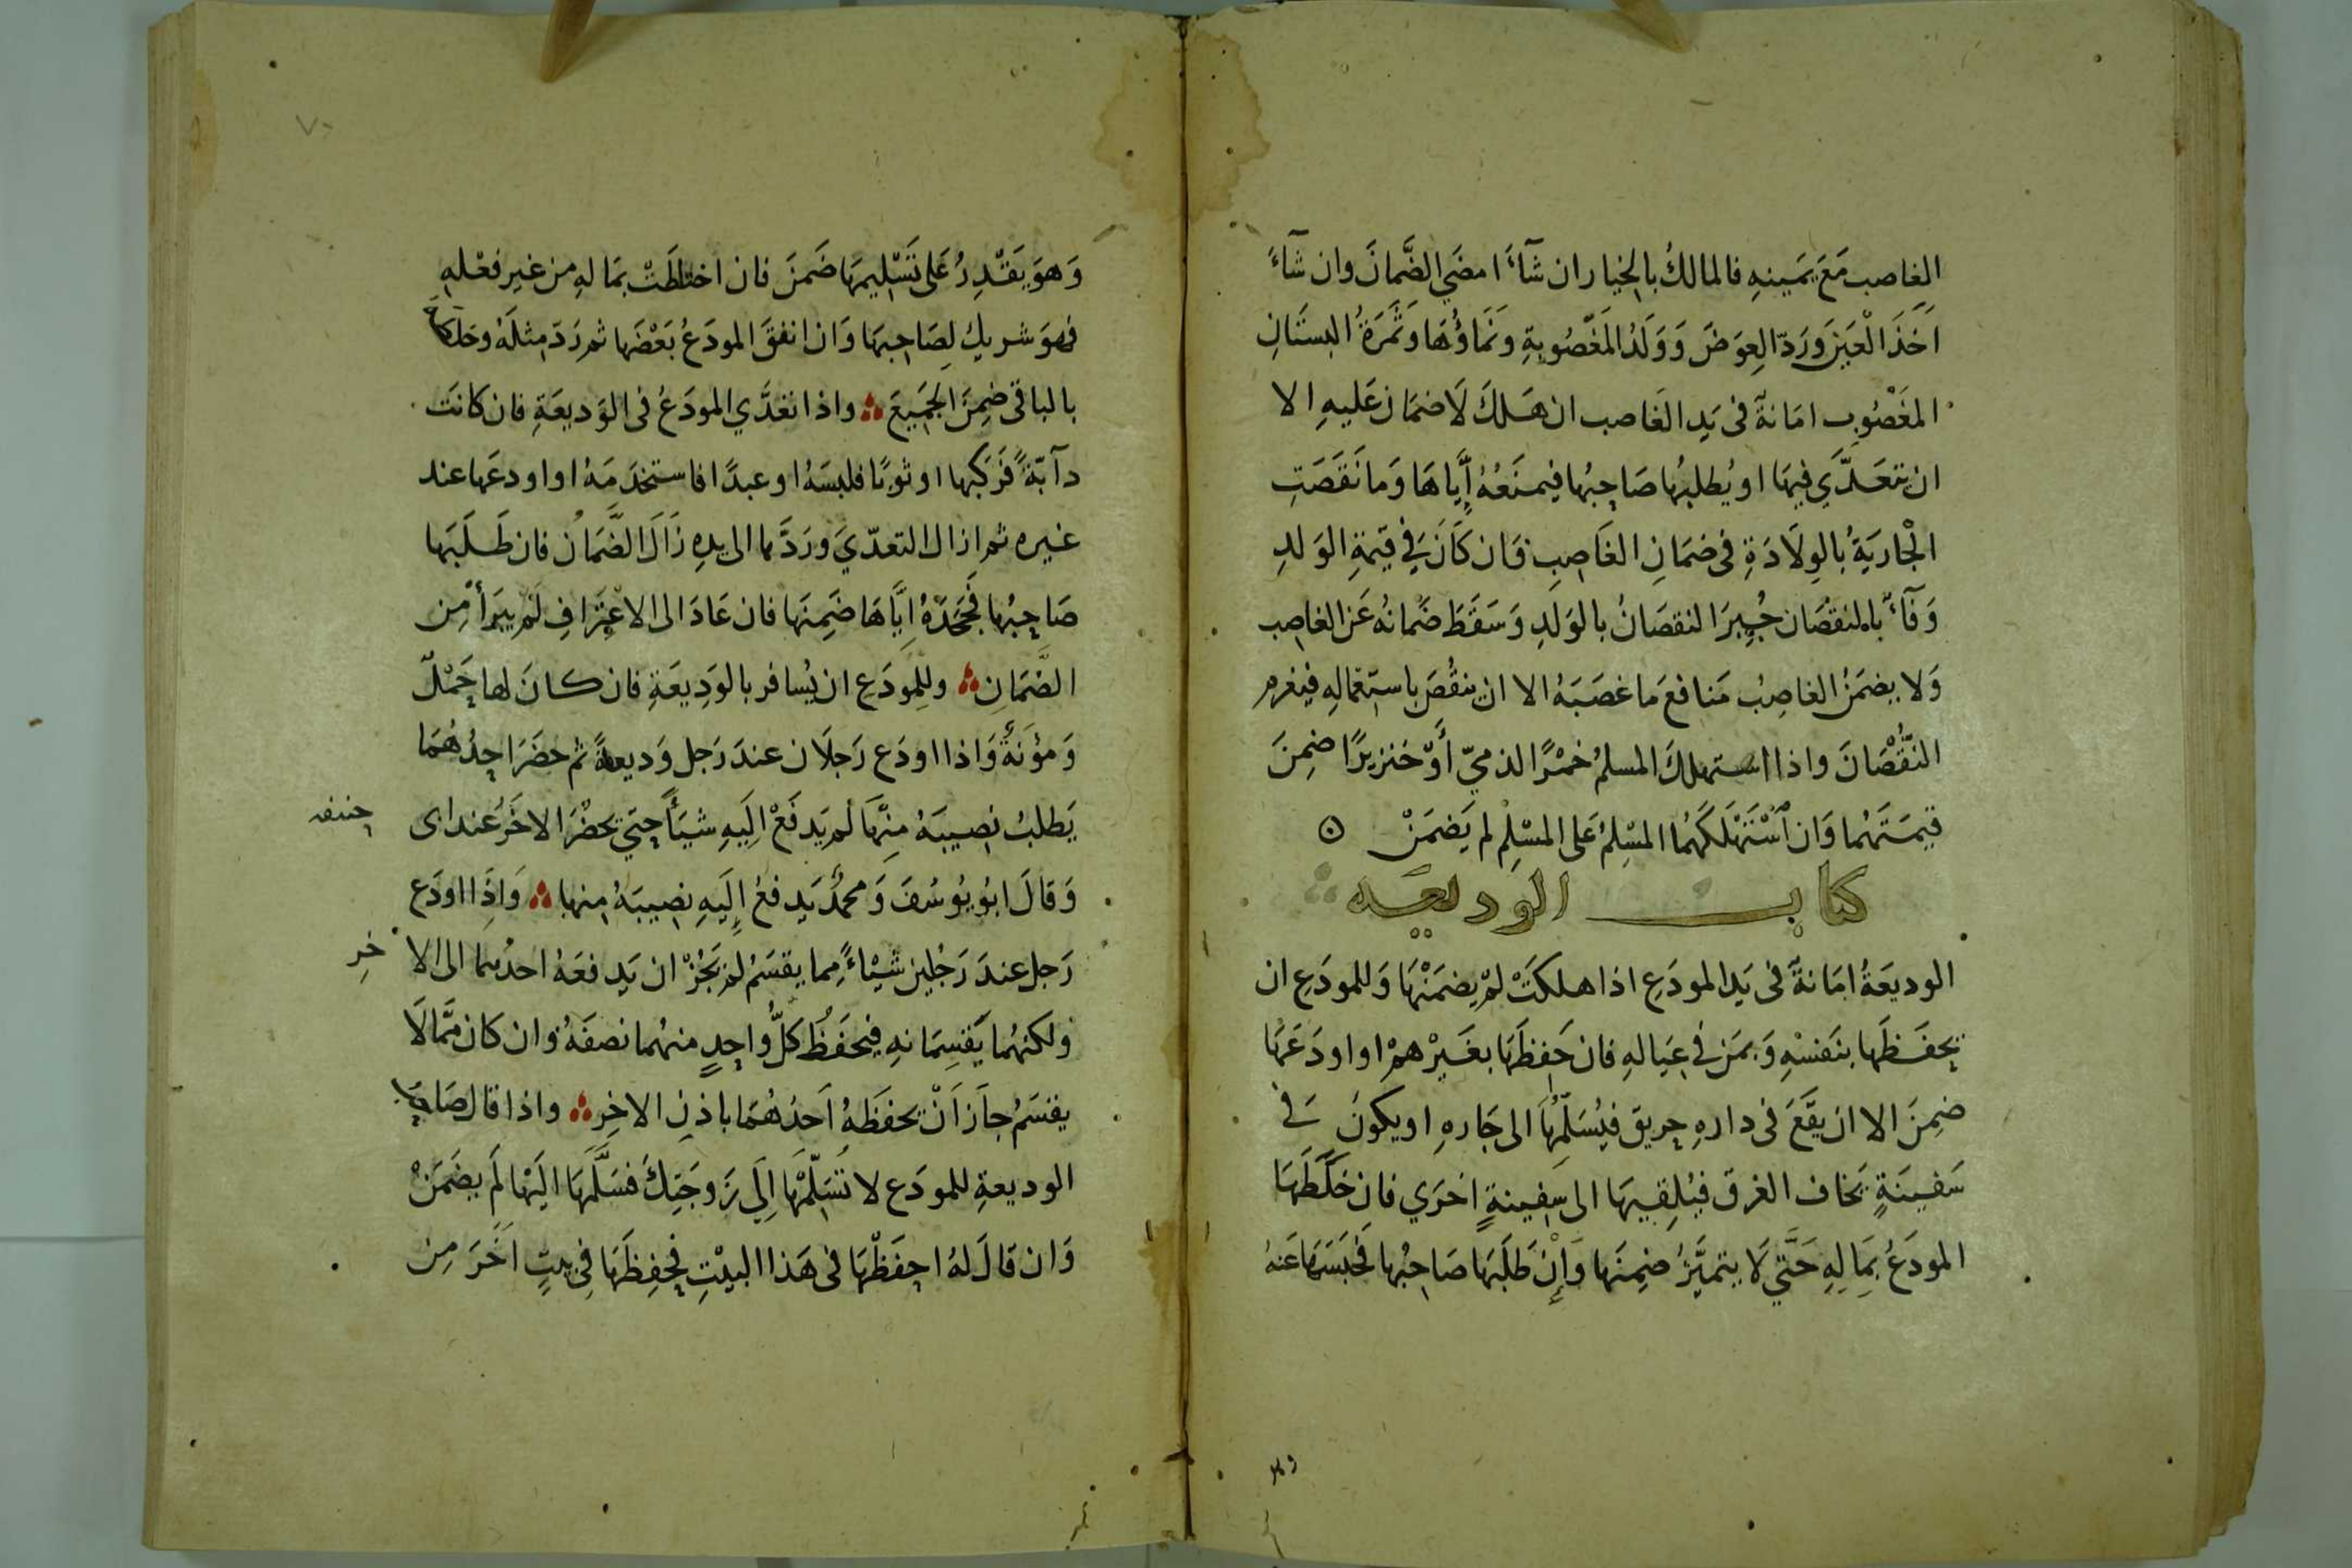 الغاصب مَعَ يَمينهِ فالمالكُ بالخيار ان شآءَ امضَي الضَّمانَ وان شآءَ
اَخَذَ الْعَيْنَ وَرَدّ العِوَضَ وَوَلَدُ المَغْصُوبةِ وَنَمَاؤُهَا وَثَمَرَةُ البستَانِ
المغَصُوبِ امَانةٌ فى يَدِ الغَاصب ان هَلكَ لَا ضمَان عَليهِ الا
ان يتَعَدَّيَ فيهَا او يُطلبُها صَاحِبُها فيمنَعُهُ إِيَّاهَا وَمَا نَقَصَتِ
الْجَاريَةُ بالوِلَادَةِ فى ضمَانِ الغَاصِبِ فَان كَانَ فِي قيمَةِ الوَلدِ
وَفآءٌ بالنقصَان جُبِرَ النقصَانُ بالوَلَدِ وَسَقَطَ ضَمانُهُ عَن الغاصِب
وَلا يضمَنُ الغاصِبُ مَنافعَ مَا غصَبَهُ الا ان ينقُصَ باستعمَالِهِ فيَغرم
النُّقْصَانَ واذا استهلكَ المسلمُ خمْرًا لذميّ أَوْ خنزيرًا ضمِنَ
قيمَتَهُما وَان اسْتَهْلَكَهُمَا المسْلِمُ عَلى المسْلِمْ لم يَضمَنْ ۞
كتاب الوديعه
الوديعَةُ امَانةٌ فى يَدِ المودَعِ اذا هلكَتْ لمْ يضمَنْهَا وَللمودَعِ ان
يحفَظَها بنَفسْهِ وَبمَن في عِيَالهِ فان حَفِظَهَا بغَيْرْهمْ او اودَعَهَا
ضمِنَ الا ان يقَعَ فى دارهِ حريق فيُسَلّمُهَا الى جَارهِ او يكونَ فى
سَفينَةٍ يَخاف الغرقَ فيُلقِيهَا الى سَفينةٍ اخرَي فان خَلَطَهَا
المودَعُ بِمَالِهِ حَتَّي لَا يتميَّزُ ضمِنَها وَإِنْ طَلَبَهَا صَاحِبُها فحَبَسَهَا عَنهُ
وهو
٧٠
وَهوَ يَقْدِرُ عَلى تَسْلِيمِهَا ضَمنَ فان اختلطَتْ بمَالهِ من غيرِ فعْلهِ
فهوَ شريكٌ لِصَاحبهَا وَان انفقَ المودَعُ بَعْضَها ثم رَدّ مثلَهُ وخلطَهُ
بالباقى ضمِنَ الجَمِيعَ ؞ واذا تعدَّي المودَعُ فى الوَديعَةِ فان كانَت
دآبّةً فرَكبَها او ثوبًا فلبسَهُ او عبدًا فاستخدَمَهُ او اودعَها عند
غيره ثم ازال التعدّيَ ورَدَّها الى يدِهِ زَالَ الضَّمَانُ فان طَلَبَها
صَاحِبُها فجَحَدَهُ إِيَّاهَا ضَمِنهَا فان عَادَ الى الاعْتِرَافِ لَم يبرَأْ مِن
الضَّمَانِ ؞ وللِمودَعِ ان يُسافر بالوَدِيعَةِ فان كانَ لها حَمْلٌ
وَمؤنَةٌ وَاذا اودَع رَجلَان عندَ رَجل وَديعةً ثم حضَرَ احِدُهُمَا
يَطلبُ نصيبَهُ مِنْهَا لَم يَدفَعْ الَيهِ شيَأً حتي يحضُرَ الاخَرُ عند ابى
حنيفه
وَقالَ ابُو يوُسُفَ وَمحمّدٌ يَدفعُ إِلَيهِ نصِيبَهُ منها ؞ وَاذَا اودَع
رَجل عندَ رَجُلين شيْاءً مِما يقسَمُ لم يَجُزْ ان يَدفعَهُ احدُهما الى الا
خرِ
ولكنهُما يَقسِمَانهِ فيحفَظُ كلُّ واحِدٍ منهُما نصفَهُ وان كان مَّمالَا
يقسَمُ جاَز اَنْ يحفَظهُ اَحدُهُمَا باذنِ الاخِرِ ؞ واذا قال صَاحِبُ
الوديعةِ للمودَع لا تُسَلّمْهَا اِلَي زَوجَتِكَ فسَلَّمَهَا الَيْهَا لَم يضمَنْ
وَان قَالَ لهُ احفَظْهَا فى هَذا البيْتِ فحفِظَهَا فِي بيتٍ اخَرَ مِن